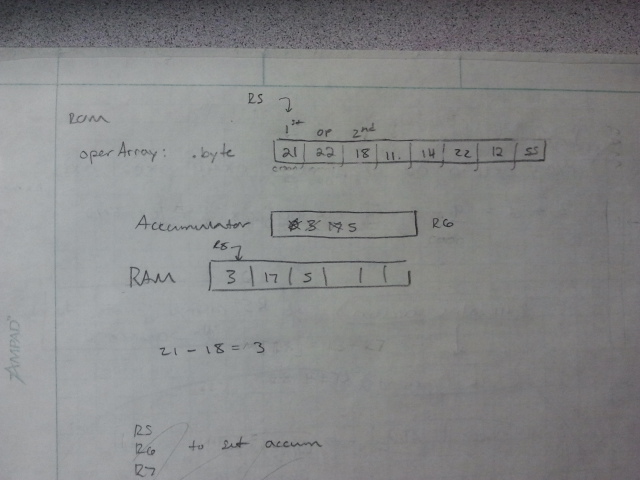 R5
ROM
1st op 2nd
operArray: .byte 21 22 18 11 14 22 12 55
Accumulator 3 17 5 R6
R8
RAM 3 17 5
21 - 18 = 3
R5
R6 to set accum
R7
AMPAD